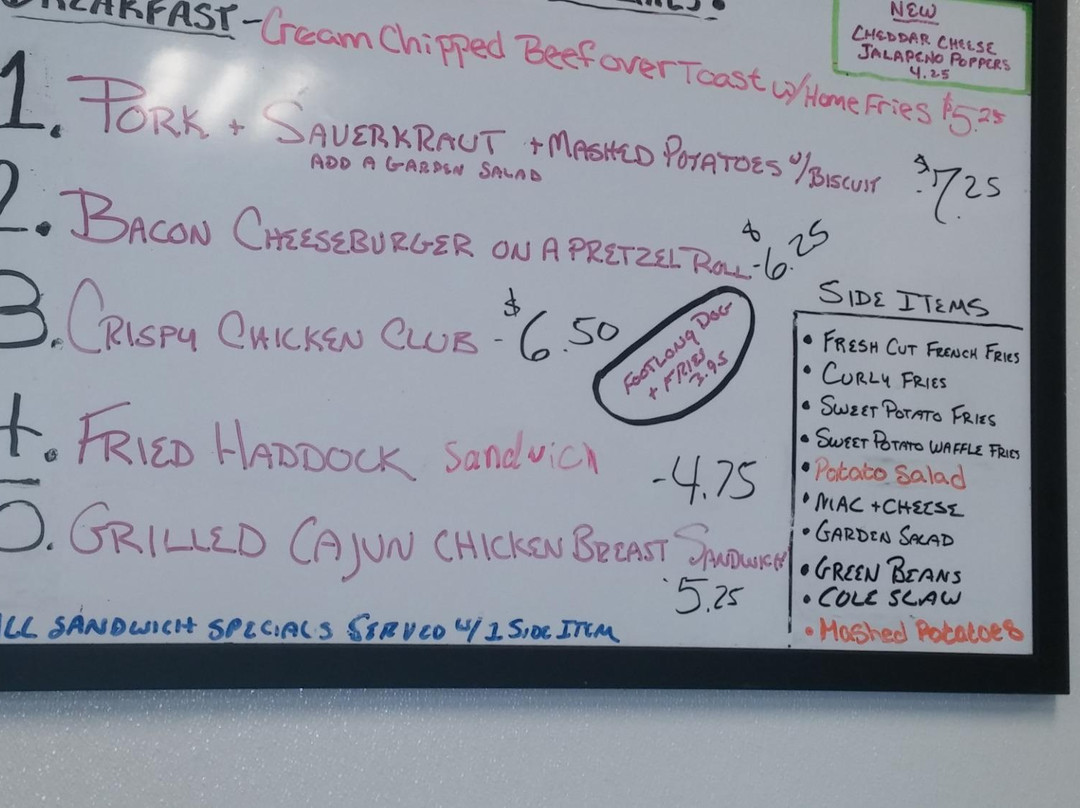 BREAKFAST - Cream Chipped Beef over Toast w/ Home Fries $5.25
NEW
CHEDDAR CHEESE
JALAPENO POPPERS
4.25
1. PORK + SAUERKRAUT + MASHED POTATOES w/ BISCUIT $7.25
ADD A GARDEN SALAD
2. BACON CHEESEBURGER ON A PRETZEL ROLL - $6.25
3. CRISPY CHICKEN CLUB - $6.50
FOOTLONG DOG
+ FRIES
3.95
4. FRIED HADDOCK Sandwich - 4.75
5. GRILLED CAJUN CHICKEN BREAST SANDWICH
5.25
ALL SANDWICH SPECIALS SERVED w/ 1 SIDE ITEM
SIDE ITEMS
• FRESH CUT FRENCH FRIES
• CURLY FRIES
• SWEET POTATO FRIES
• SWEET POTATO WAFFLE FRIES
• Potato Salad
• MAC + CHEESE
• GARDEN SALAD
• GREEN BEANS
• COLE SLAW
• Mashed Potatoes